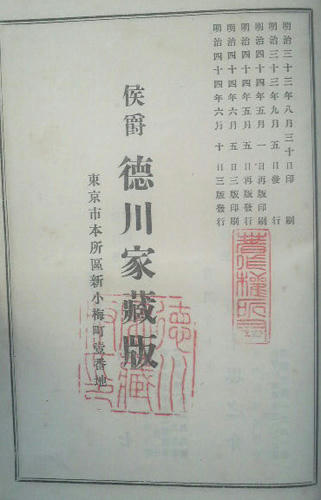 明治三十三年八月三十日印刷
明治三十三年九月五日發行
明治四十四年五月一日再版印刷
明治四十四年五月五日再版發行
明治四十四年六月五日三版印刷
明治四十四年六月十日三版發行
侯爵 德川家藏版
東京市本所區新小梅町壹番地
著作權所有
德川